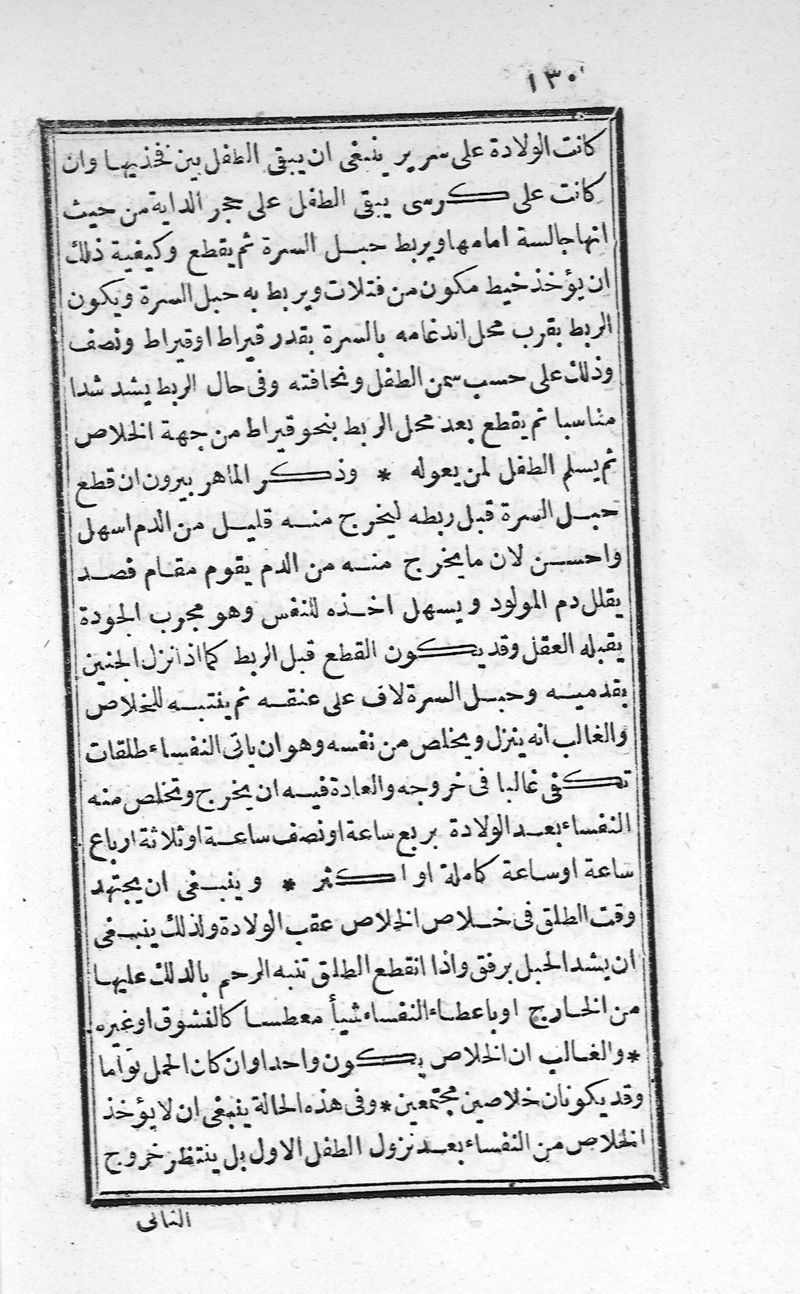 ١٣٠
كانت الولادة على سرير ينبغى ان يبقى الطفل بين فخذيها وان
كانت على كرسى يبقى الطفل على حجر الداية من حيث
انها جالسة امامها ويربط حبل السرة ثم يقطع وكيفية ذلك
ان يؤخذ خيط مكون من فتلات ويربط به حبل السرة ويكون
الربط بقرب محل اندغامه بالسرة بقدر قيراط اوقيراط ونصف
وذلك على حسب سمن الطفل ونحافته وفى حال الربط يشد شدا
مناسبا ثم يقطع بعد محل الربط بنحو قيراط من جهة الخلاص
ثم يسلم الطفل لمن يعوله * وذكر الماهر بيرون ان قطع
حبل السرة قبل ربطه ليخرج منه قليل من الدم اسهل
واحسن لان ما يخرج منه من الدم يقوم مقام فصد
يقلل دم المولود ويسهل اخذه للنفس وهو مجرب الجودة
يقبله العقل وقد يكون القطع قبل الربط كما اذا نزل الجنين
بقدميه وحبل السرة لاف على عنقه ثم ينتبه للخلاص
والغالب انه ينزل ويخلص من نفسه وهو ان ياتى النفساء طلقات
تكفى غالبا فى خروجه والعادة فيه ان يخرج وتخلص منه
النفساء بعد الولادة بربع ساعة اونصف ساعة اوثلاثة ارباع
ساعة اوساعة كاملة او اكثر * وينبغى ان يجتهد
وقت الطلق فى خلاص الخلاص عقب الولادة ولذلك ينبغى
ان يشد الحبل برفق واذا انقطع الطلق تنبه الرحم بالدلك عليها
من الخارج اوباعطاء النفساء شيأ معطسا كالنشوق اوغيره
* والغالب ان الخلاص يكون واحدا وان كان الحمل توأما
وقد يكونان خلاصين مجتمعين * وفى هذه الحالة ينبغى ان لا يؤخذ
الخلاص من النفساء بعد نزول الطفل الاول بل ينتظر خروج
الثانى